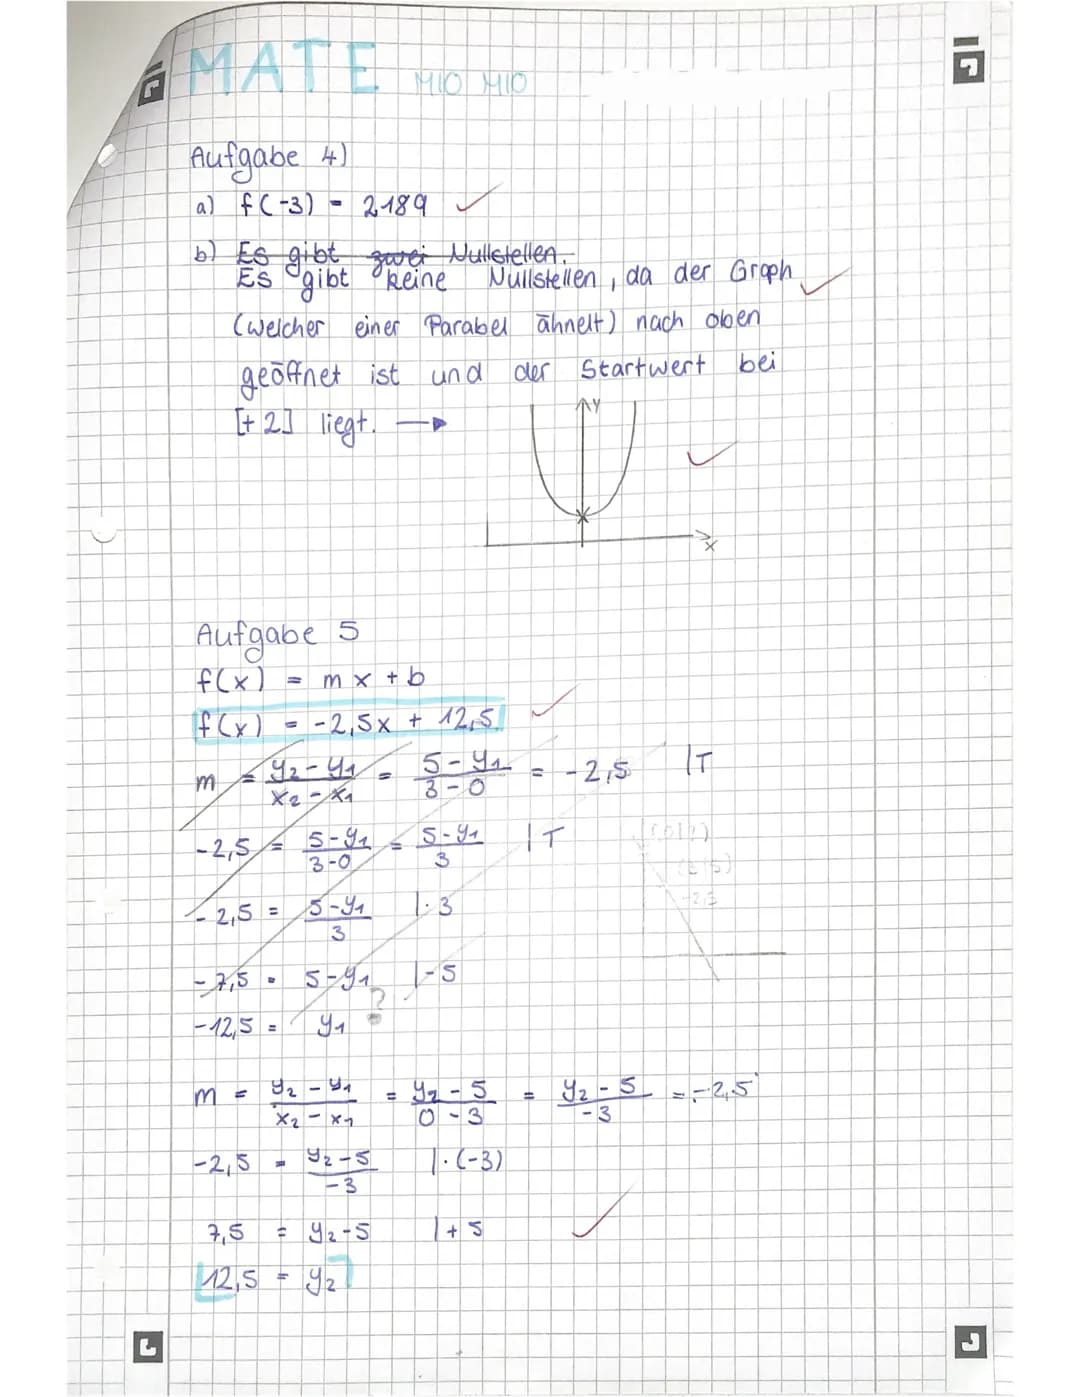 MATE MIO MIO
Aufgabe 4)
a) f(-3) = 2189
b) Es gibt zwei Nullstellen.
Es gibt keine Nullstellen, da der Graph
(welcher einer Parabel ähnelt) nach oben
geöffnet ist und der Startwert bei
[+2] liegt. →
y
x
Aufgabe 5
f(x) = mx + b
f(x) = -2,5x + 12,5
m = y₂-y₁/x₂-x₁ = 5-y₁/3-0 = -2,5 |T
-2,5 = 5-y₁/3-0 = 5-y₁/3 |T
(0|?)
(3|5)
-2,5
-2,5 = 5-y₁/3 |·3
-7,5 = 5-y₁ |-5
-12,5 = y₁ ?
m = y₂-y₁/x₂-x₁ = y₂-5/0-3 = y₂-5/-3 = -2,5
-2,5 = y₂-5/-3 |·(-3)
7,5 = y₂-5 |+5
12,5 = y₂